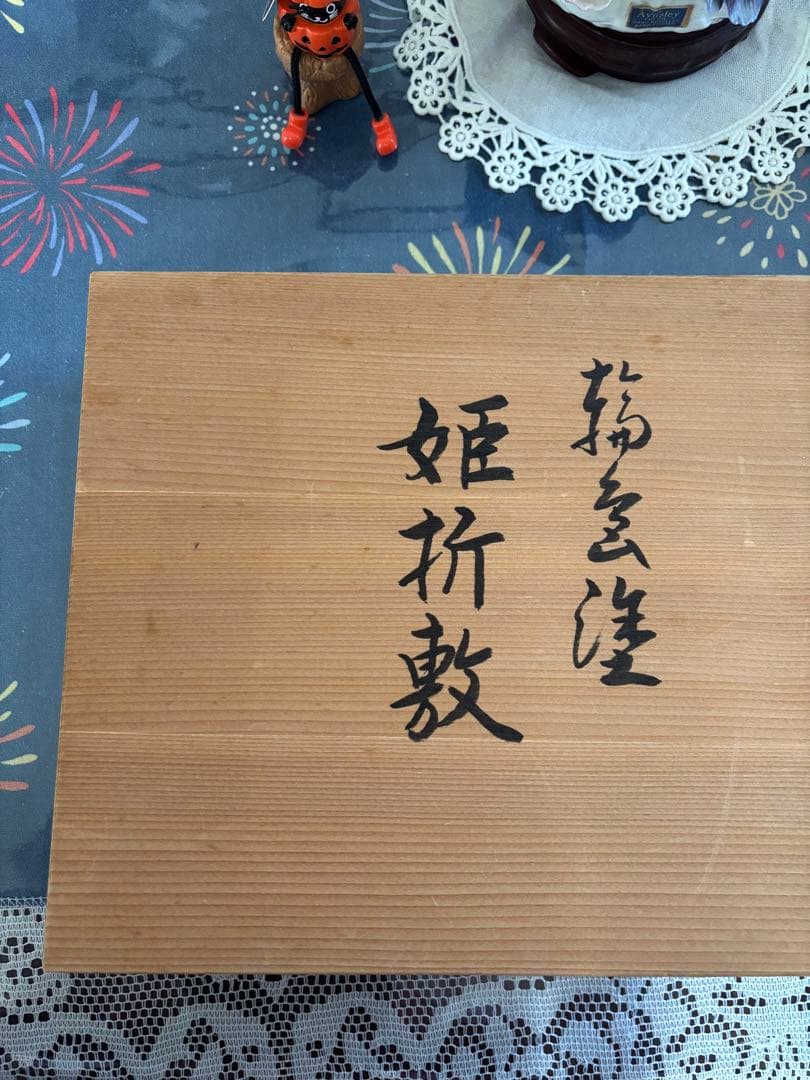 輪島塗
姫折敷
Aynsley